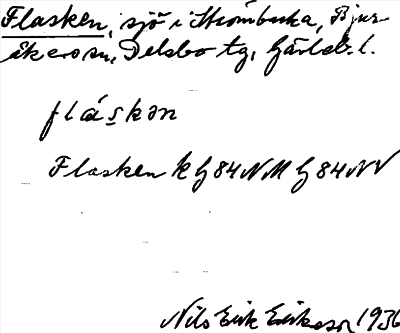 Flasken, sjö i Strömbacka, Bjur-
åkers sn, Delsbo tg, Gävleb. l.
flásḳən
Flasken k G 84 NM G 84 NV
Nils Eirik Eirikson 1936